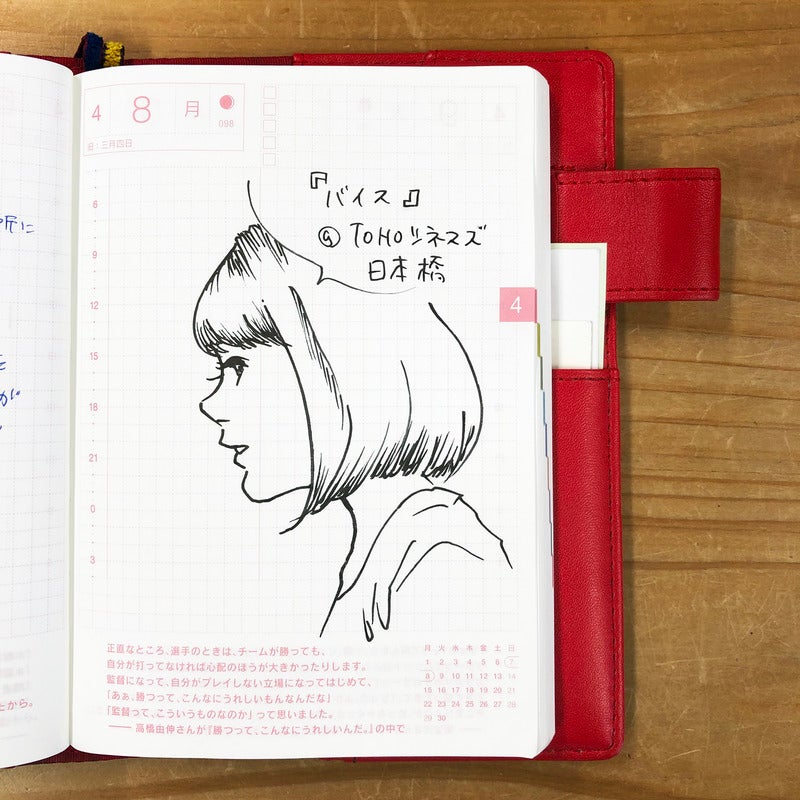 4 8 月
098
旧:三月四日
『バイス』
@ TOHOシネマズ
日本橋
4
6
9
12
15
18
21
0
3
正直なところ、選手のときは、チームが勝っても、
自分が打ってなければ心配のほうが大きかったりします。
監督になって、自分がプレイしない立場になってはじめて、
「あぁ、勝つって、こんなにうれしいもんなんだな」
「監督って、こういうものなのか」って思いました。
——高橋由伸さんが『勝つって、こんなにうれしいんだ。』の中で
月 火 水 木 金 土 日
1 2 3 4 5 6 7
8 9 10 11 12 13 14
15 16 17 18 19 20 21
22 23 24 25 26 27 28
29 30
とから。